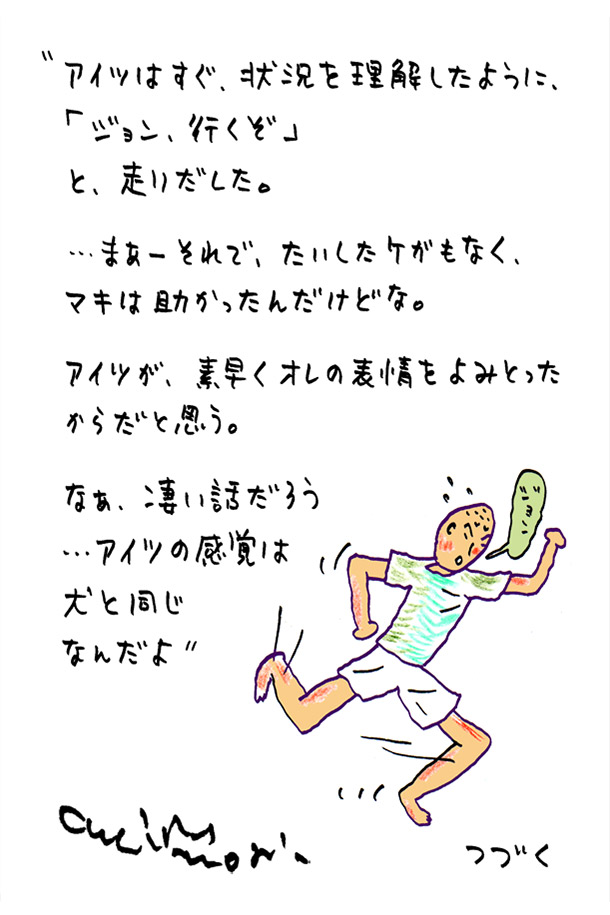 〝アイツはすぐ、状況を理解したように、
「ジョン、行くぞ」
と、走りだした。
…まぁーそれで、たいしたケガもなく、
マキは助かったんだけどな。
アイツが、素早くオレの表情をよみとった
からだと思う。
なぁ、凄い話だろう
…アイツの感覚は
犬と同じ
なんだよ〟
ジョン、
つづく